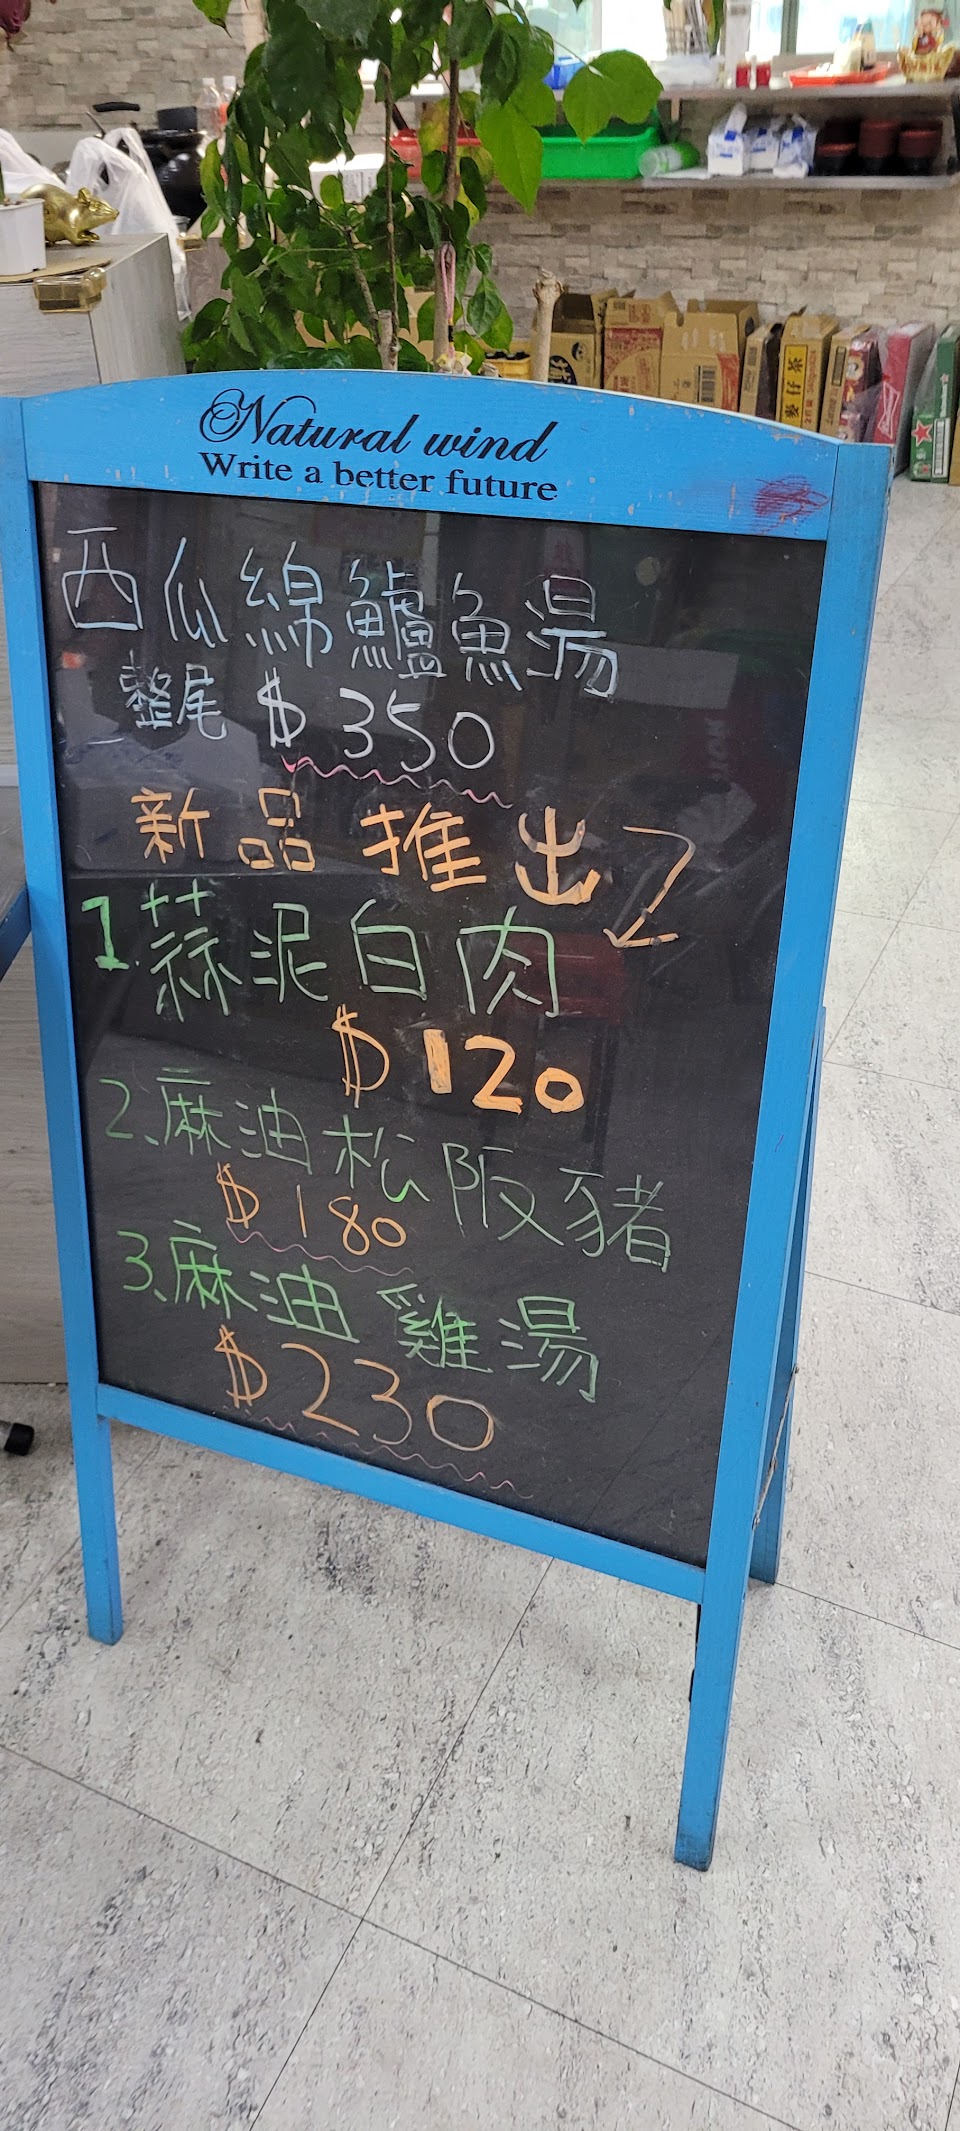 Natural wind
Write a better future
西瓜綿鱸魚湯
整尾 $350
新品推出
1.蒜泥白肉
$120
2、麻油松阪豬
$180
3、麻油雞湯
$230
麥仔茶